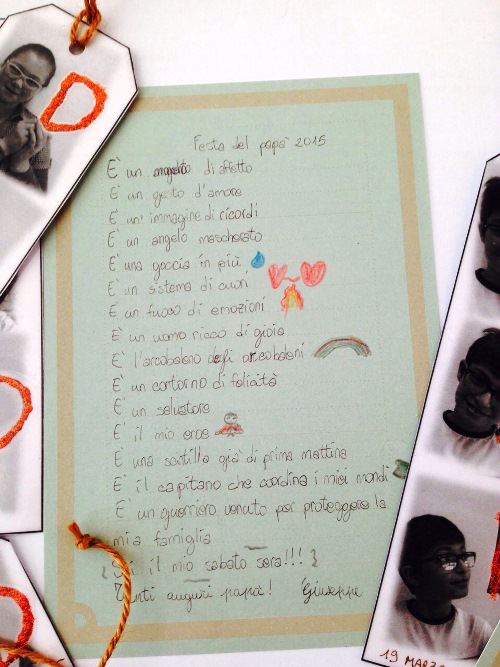 D
Festa del papà 2015
È un angioletto di affetto
È un gesto d'amore
È un' immagine di ricordi
È un angelo mascherato
È una goccia in più
È un sistema di cuori
È un fuoco di emozioni
È un uomo ricco di gioia
È l'arcobaleno degli arcobaleni
È un contorno di felicità
È un salvatore
È il mio eroe
È una scintilla già di prima mattina
È il capitano che coordina i miei mondi
È un guerriero venuto per proteggere la
mia famiglia
il mio sabato sera!!!
Tanti auguri papà! Giuseppe
19 MARZO